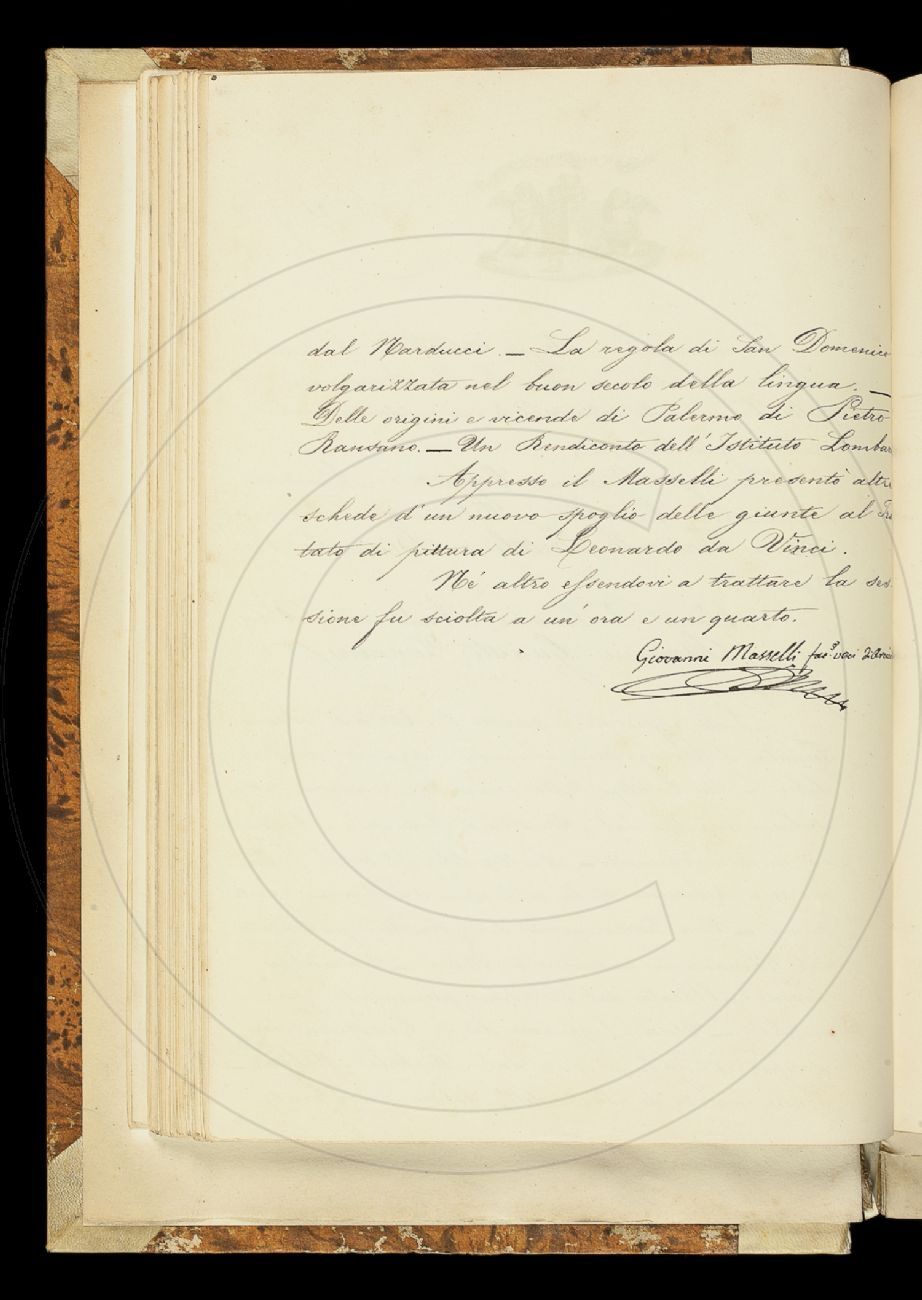 dal Narducci. — La regola di San Domenico
volgarizzata nel buon secolo della lingua. —
Delle origini e vicende di Palermo di Pietro
Ransano. — Un Rendiconto dell'Istituto Lombar
Appresso il Masselli presentò altre
schede d'un nuovo spoglio delle giunte al Tra
tato di pittura di Leonardo da Vinci.
Né altro essendovi a trattare la ses
sione fu sciolta a un'ora e un quarto.
Giovanni Masselli fac.e veci di